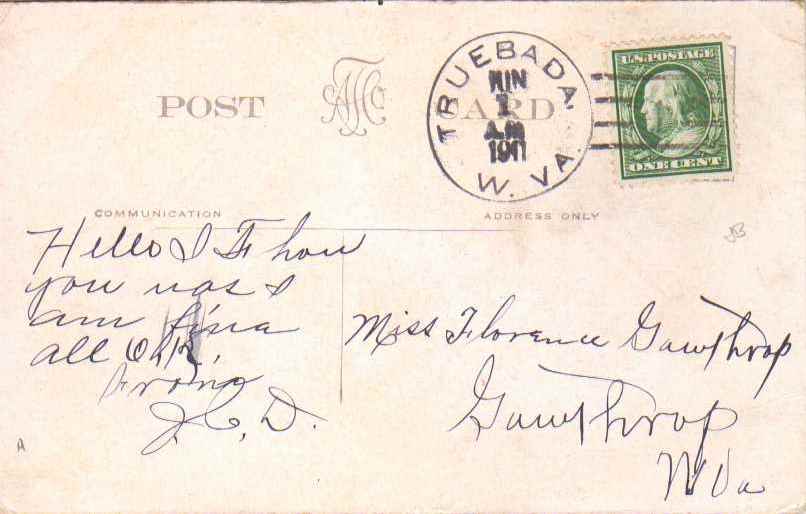 POST CARD
TRUEBADA,
1
A.M
1911
W. VA.
U.S. POSTAGE
ONE CENT
COMMUNICATION
ADDRESS ONLY
Hello I F how
you was I
am fina
all O.K.
from
J. C. D.
Miss Florence Gawthrop
Gawthrop
W Va
A